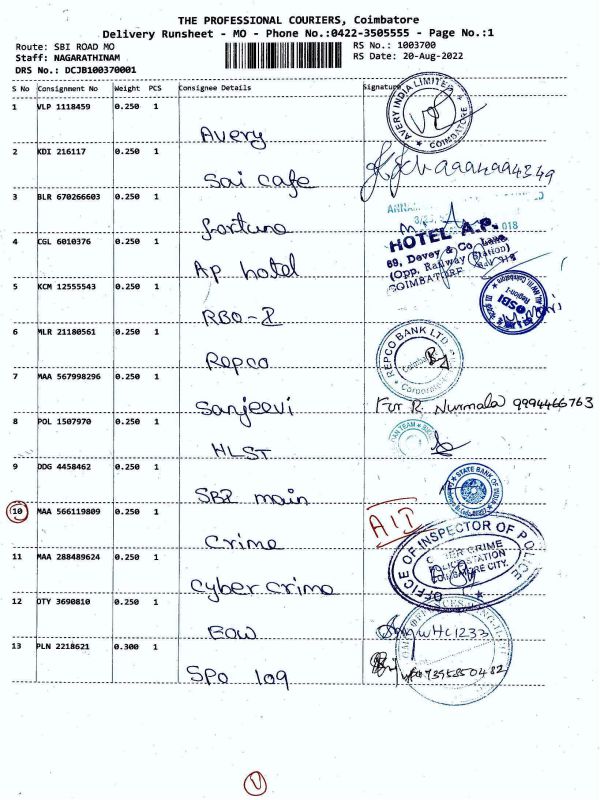 THE PROFESSIONAL COURIERS, Coimbatore
Delivery Runsheet - MO - Phone No.:0422-3505555 - Page No.:1
Route: SBI ROAD MO RS No.: 1003700
Staff: NAGARATHINAM RS Date: 20-Aug-2022
DRS No.: DCJB100370001
S No Consignment No Weight PCS Consignee Details Signature
1 VLP 1118459 0.250 1
AVERY INDIA LIMITED ★ COIMBATORE ★
Avery
2 KDI 216117 0.250 1
Sai cafe
3 BLR 670266603 0.250 1
018
fortune
HOTEL A.P.
4 CGL 6010376 0.250 1
69, Devey & Co. Lane
(Opp. Railway Station)
COIMBATORE
Ap hotel
5 KCM 12555543 0.250 1
SBI
Region-I
RBO-I
6 MLR 21180561 0.250 1
REPCO BANK LTD
Coimbatore
Corporate
Repco
7 MAA 567998296 0.250 1
Sanjeevi For R. Nurmala 9994466763
8 POL 1507970 0.250 1
HLST
9 DDG 4458462 0.250 1
STATE BANK OF INDIA
SBI main
10 MAA 566119809 0.250 1
AIT
Crime
OFFICE OF INSPECTOR OF POLICE
CYBER CRIME
POLICE STATION
COIMBATORE CITY.
11 MAA 288489624 0.250 1
Cyber crime
12 OTY 3690810 0.250 1
EOW HC1233
13 PLN 2218621 0.300 1
SPO 109